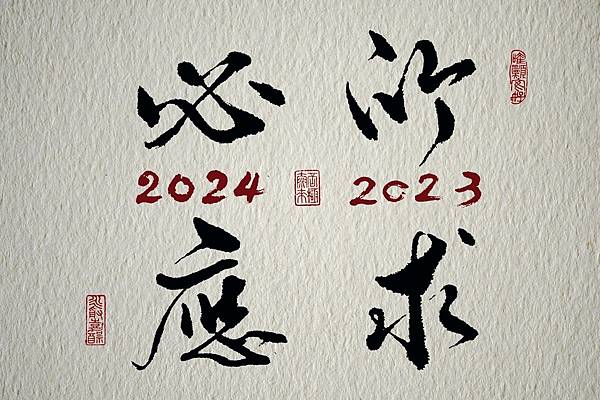 所
2023
求
必
2024
應